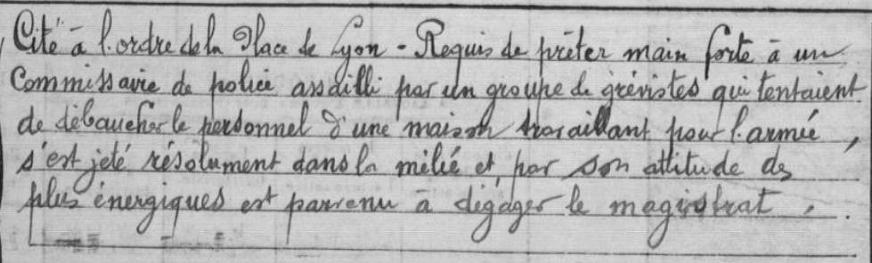 Cité à l'ordre de la Place de Lyon - Requis de prêter main forte à un
Commissaire de police assailli par un groupe de grévistes qui tentaient
de débaucher le personnel d'une maison travaillant pour l'armée,
s'est jeté résolument dans la mêlée et, par son attitude des
plus énergiques est parvenu à dégager le magistrat.